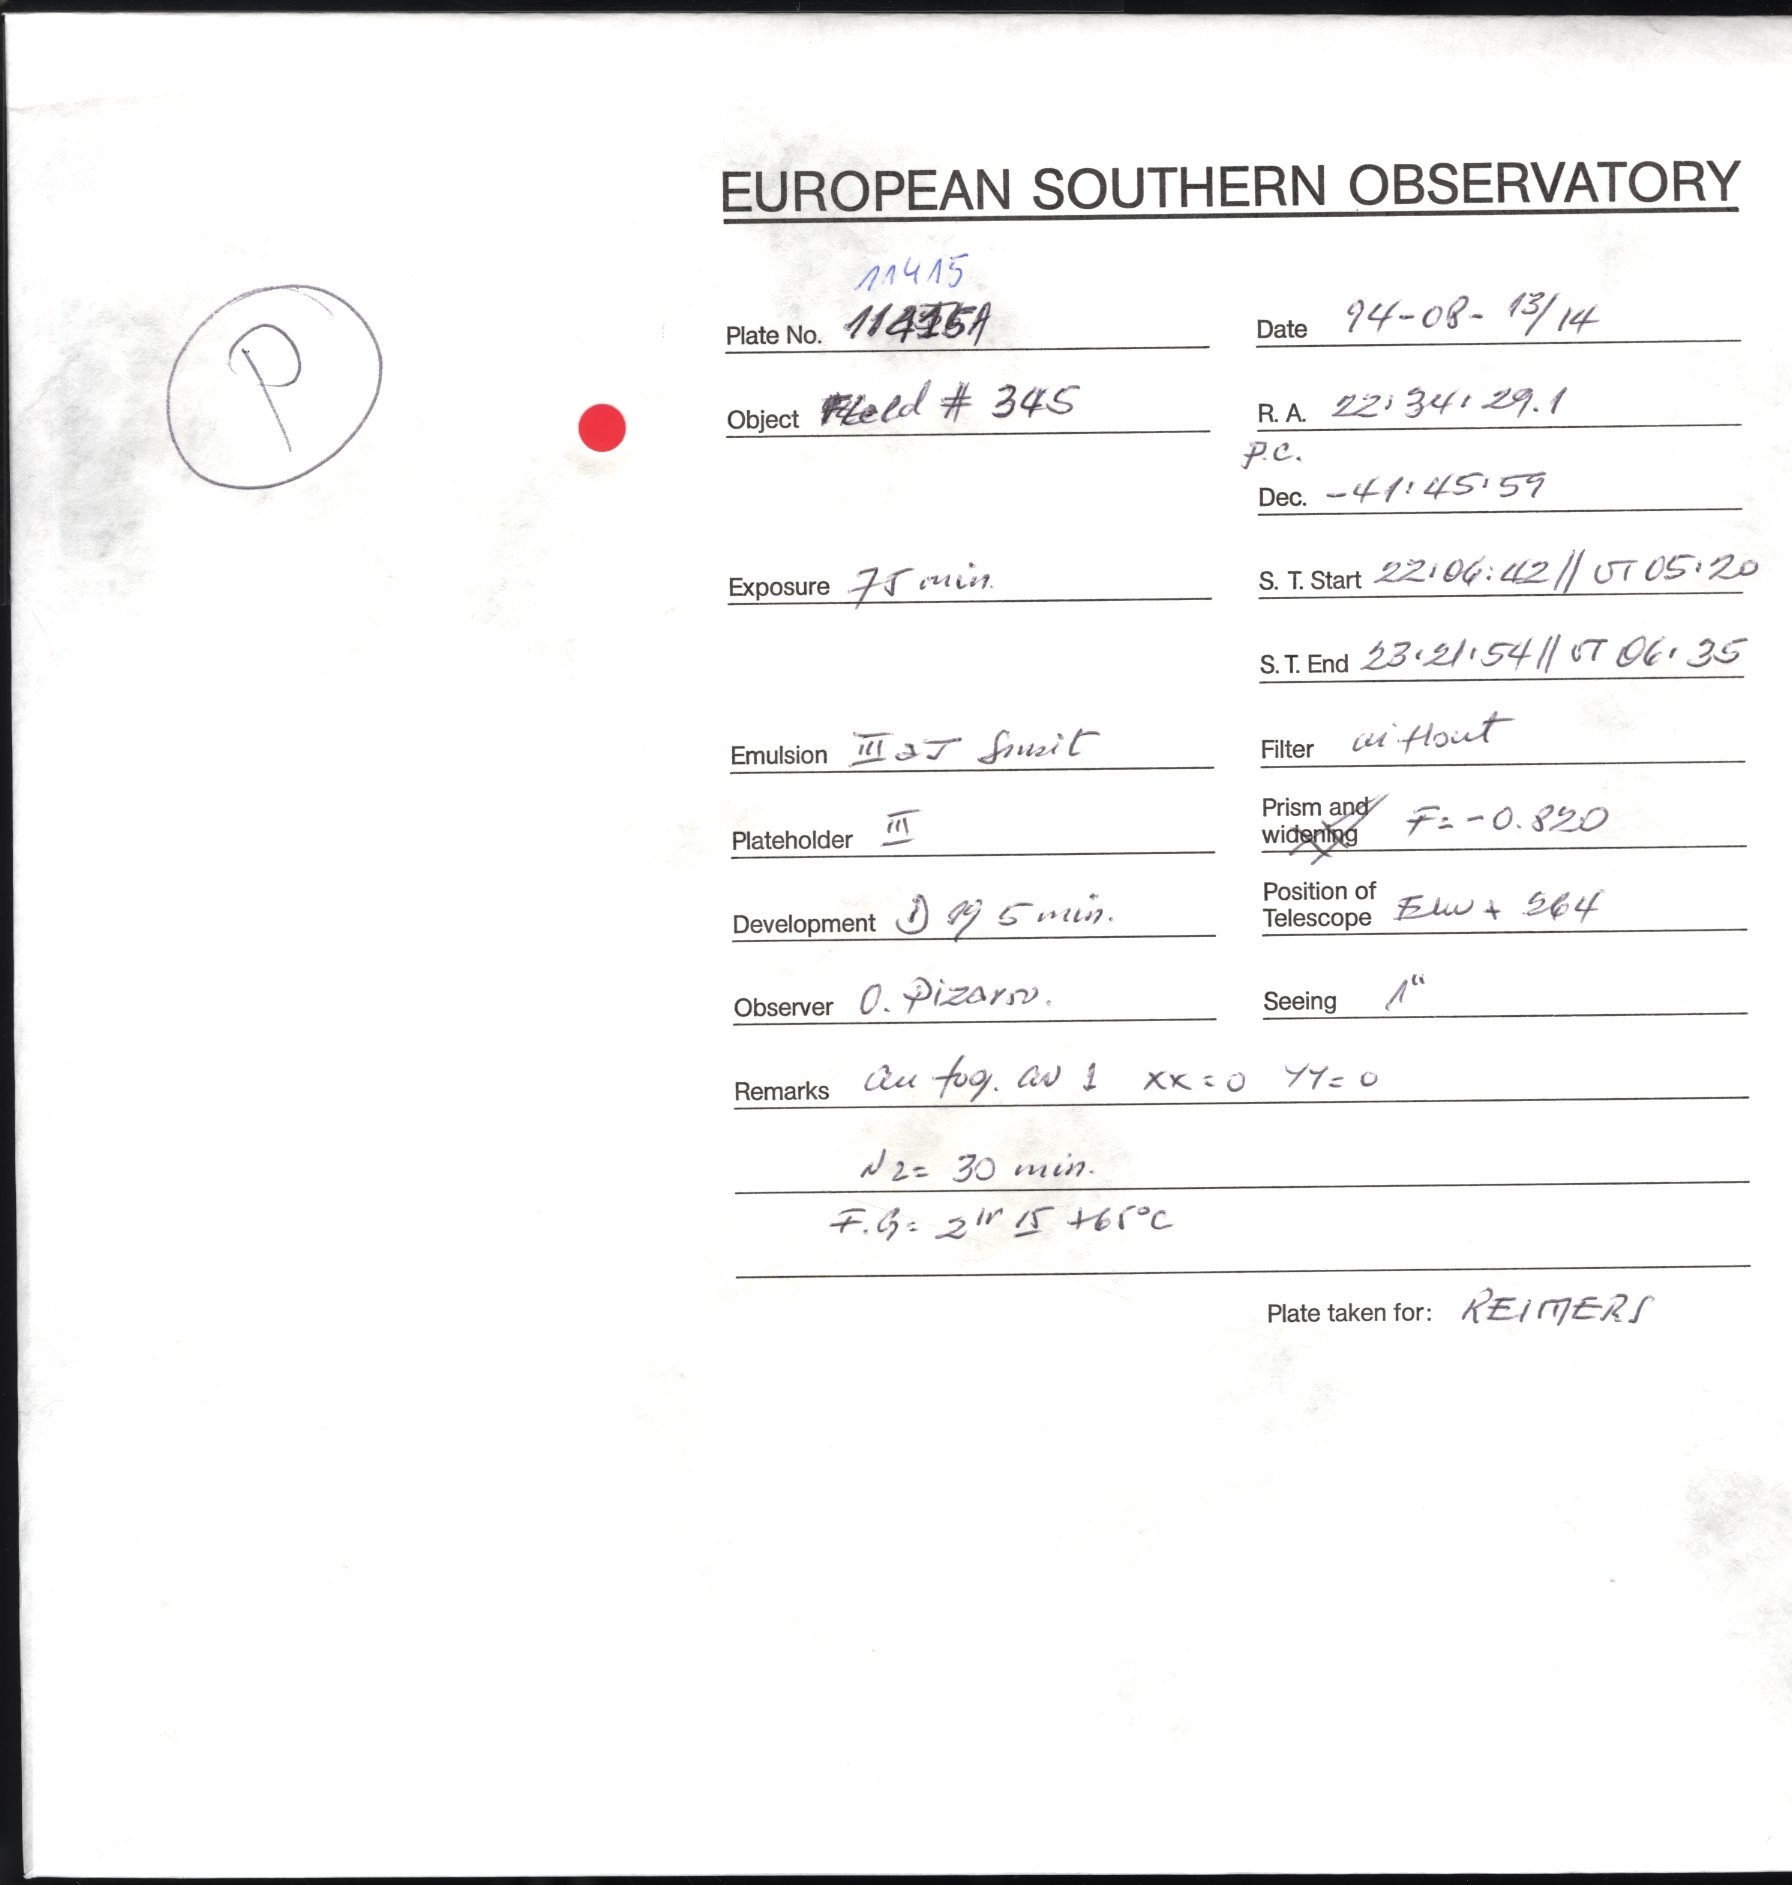 EUROPEAN SOUTHERN OBSERVATORY
P
11415
Plate No. 11415A
Date 94-08-13/14
Object Field # 345
R. A. 22:34:29.1
P.C.
Dec. -41:45:59
Exposure 75 min.
S. T. Start 22:06:42 // UT 05:20
S. T. End 23:21:54 // UT 06:35
Emulsion III aJ
Filter without
Plateholder III
Prism and widening F=-0.820
Development D 19 5 min.
Position of Telescope + 264
Observer O. Pizarro.
Seeing 1"
Remarks xx=0 YY=0
N2= 30 min.
F.G= 2 hr 15 +65°C
Plate taken for: REIMERS